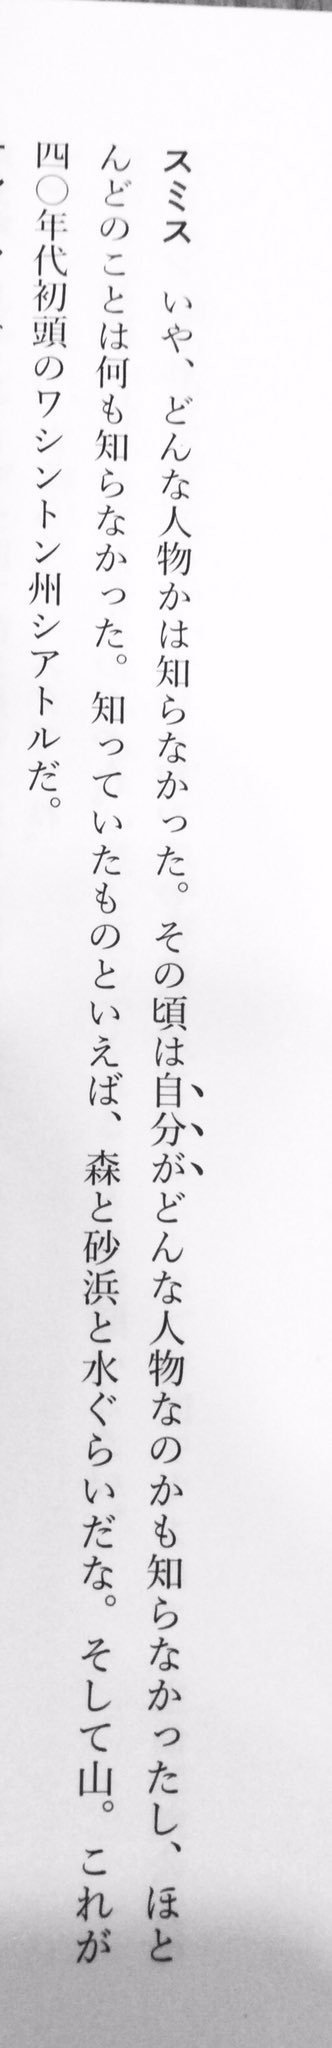 スミス　いや、どんな人物かは知らなかった。その頃は自分がどんな人物なのかも知らなかったし、ほと
んどのことは何も知らなかった。知っていたものといえば、森と砂浜と水ぐらいだな。そして山。これが
四〇年代初頭のワシントン州シアトルだ。